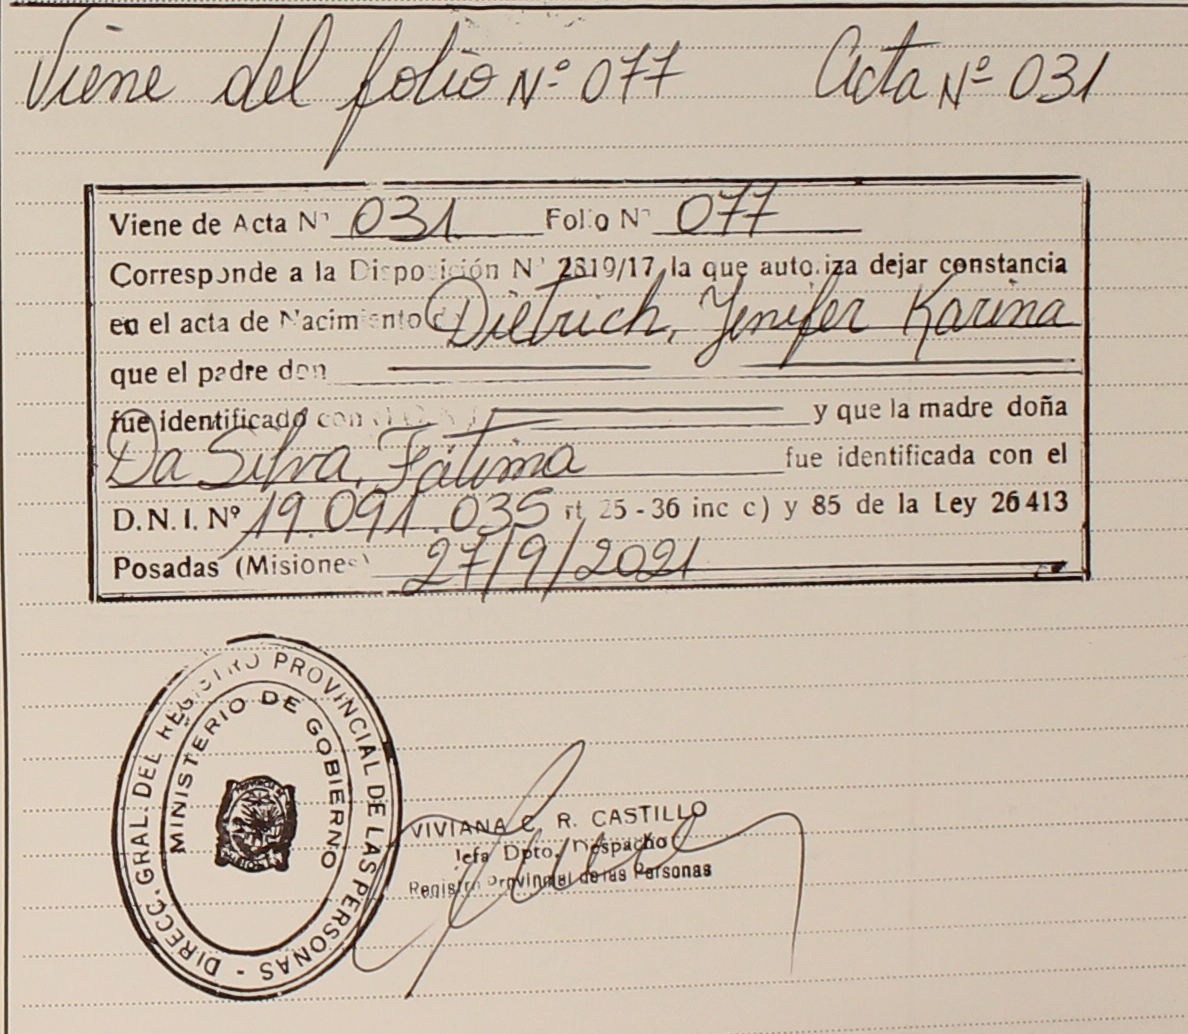 Viene del folio Nº 077 Acta Nº 031
Viene de Acta Nº 031 Folio Nº 077
Corresponde a la Disposición Nº 2819/17, la que autoriza dejar constancia
en el acta de Nacimiento de Dietrich, Yenifer Karina
que el padre don
fue identificado con D.N.I. y que la madre doña
Da Silva, Fátima fue identificada con el
D.N.I. Nº 19.091.035 rt 25 - 36 inc c) y 85 de la Ley 26413
Posadas (Misiones) 27/9/2021
DIRECC. GRAL. DEL REGISTRO PROVINCIAL DE LAS PERSONAS -
MINISTERIO DE GOBIERNO
VIVIANA C. R. CASTILLO
Jefa Dpto. Despacho
Registro Provincial de las Personas